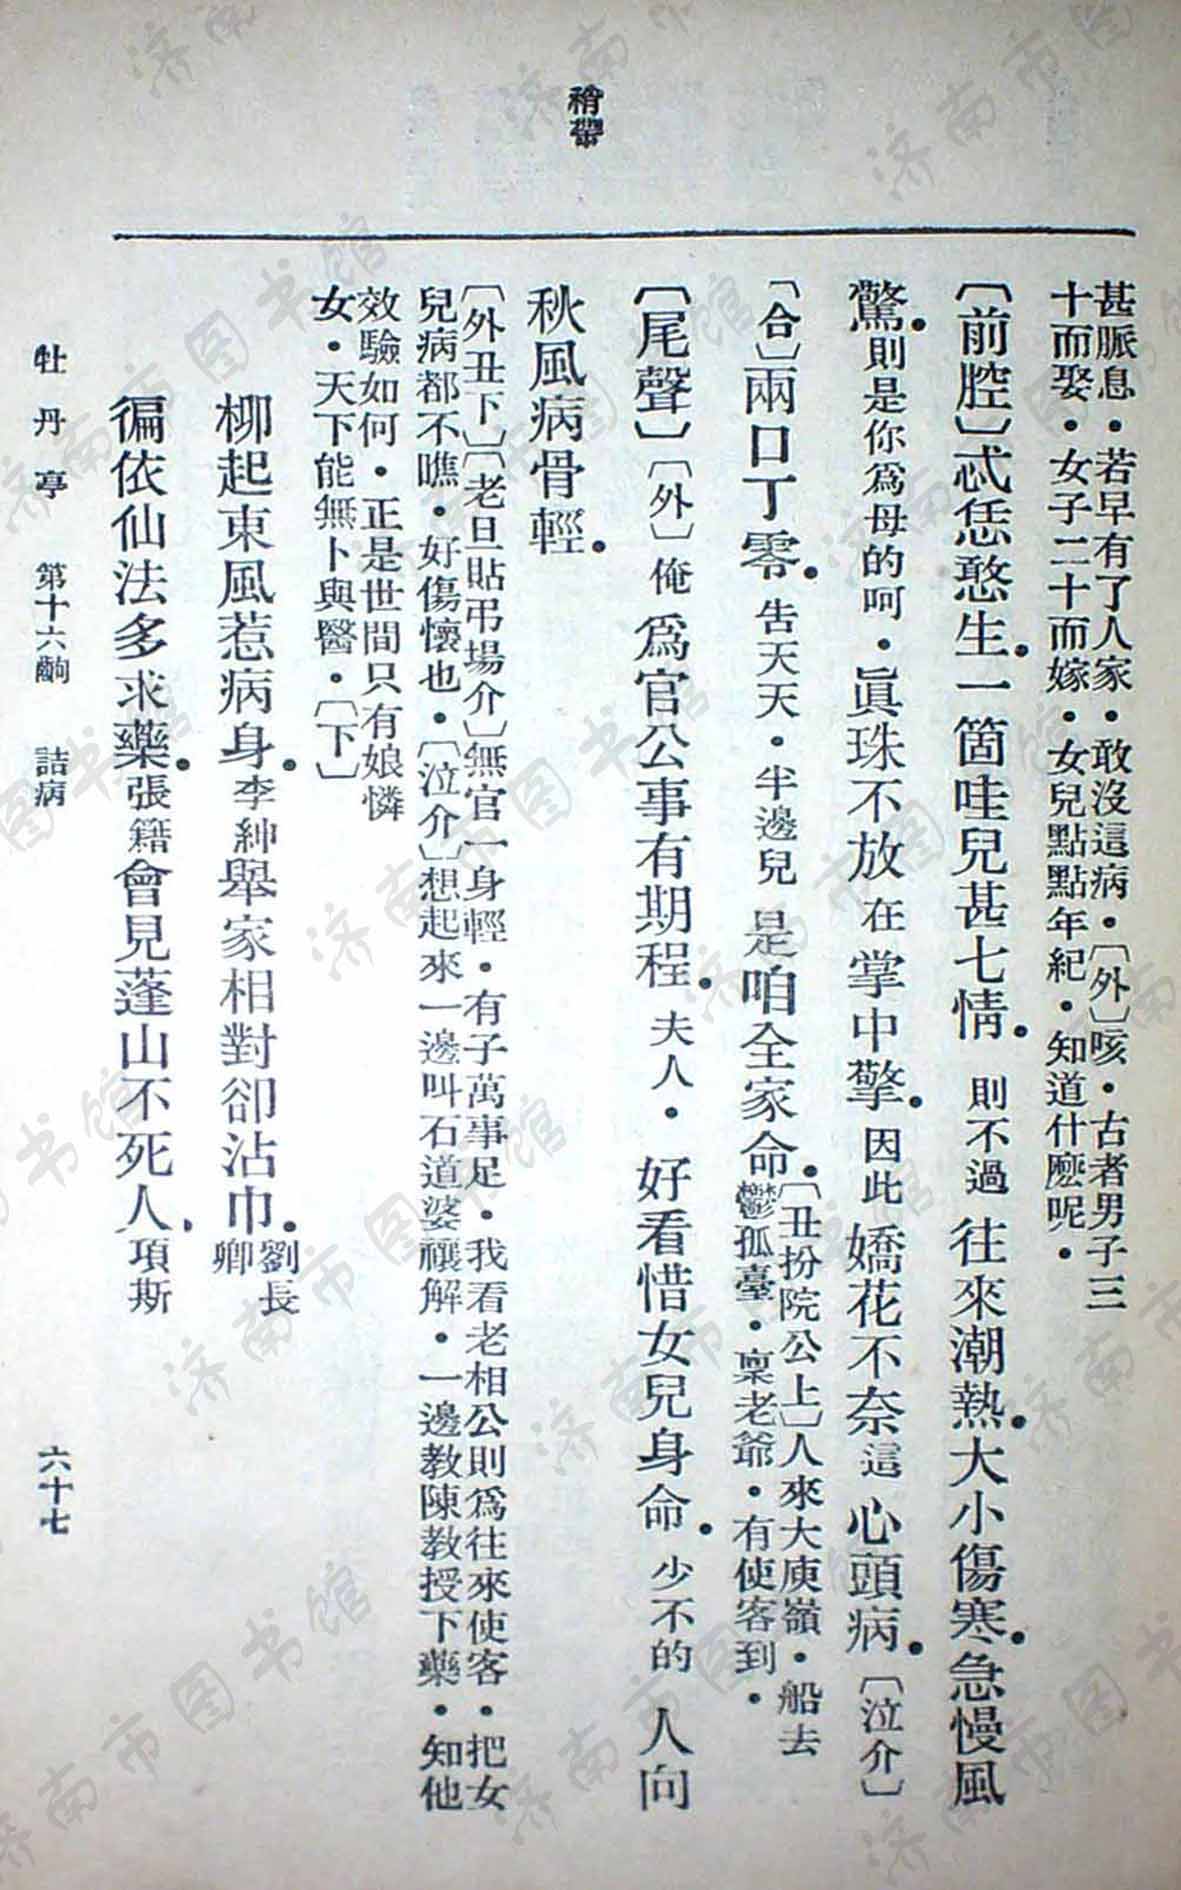 稍帶
甚脈息・若早有了人家・敢沒這病・〔外〕咳・古者男子三
十而娶・女子二十而嫁・女兒點點年紀・知道什麼呢・
〔前腔〕忒恁憨生一箇哇兒甚七情則不過往來潮熱大小傷寒急慢風
驚則是你爲母的呵・眞珠不放在掌中擎因此嬌花不奈這心頭病〔泣介〕
〔合〕兩口丁零告天天・半邊兒是咱全家命
〔丑扮院公上〕人來大庾嶺・船去
鬱孤臺・稟老爺・有使客到・
〔尾聲〕〔外〕俺爲官公事有期程夫人・好看惜女兒身命少不的人向
秋風病骨輕
〔外丑下〕〔老旦貼吊場介〕無官一身輕・有子萬事足・我看老相公則爲往來使客・把女
兒病都不瞧・好傷懷也・〔泣介〕想起來一邊叫石道婆禳解・一邊教陳教授下藥・知他
效驗如何・正是世間只有娘憐
女・天下能無卜與醫・〔下〕
柳起東風惹病身李紳舉家相對卻沾巾劉長卿
徧依仙法多求藥張籍會見蓬山不死人項斯
牡丹亭 第十六齣 詰病 六十七
济南市图书馆